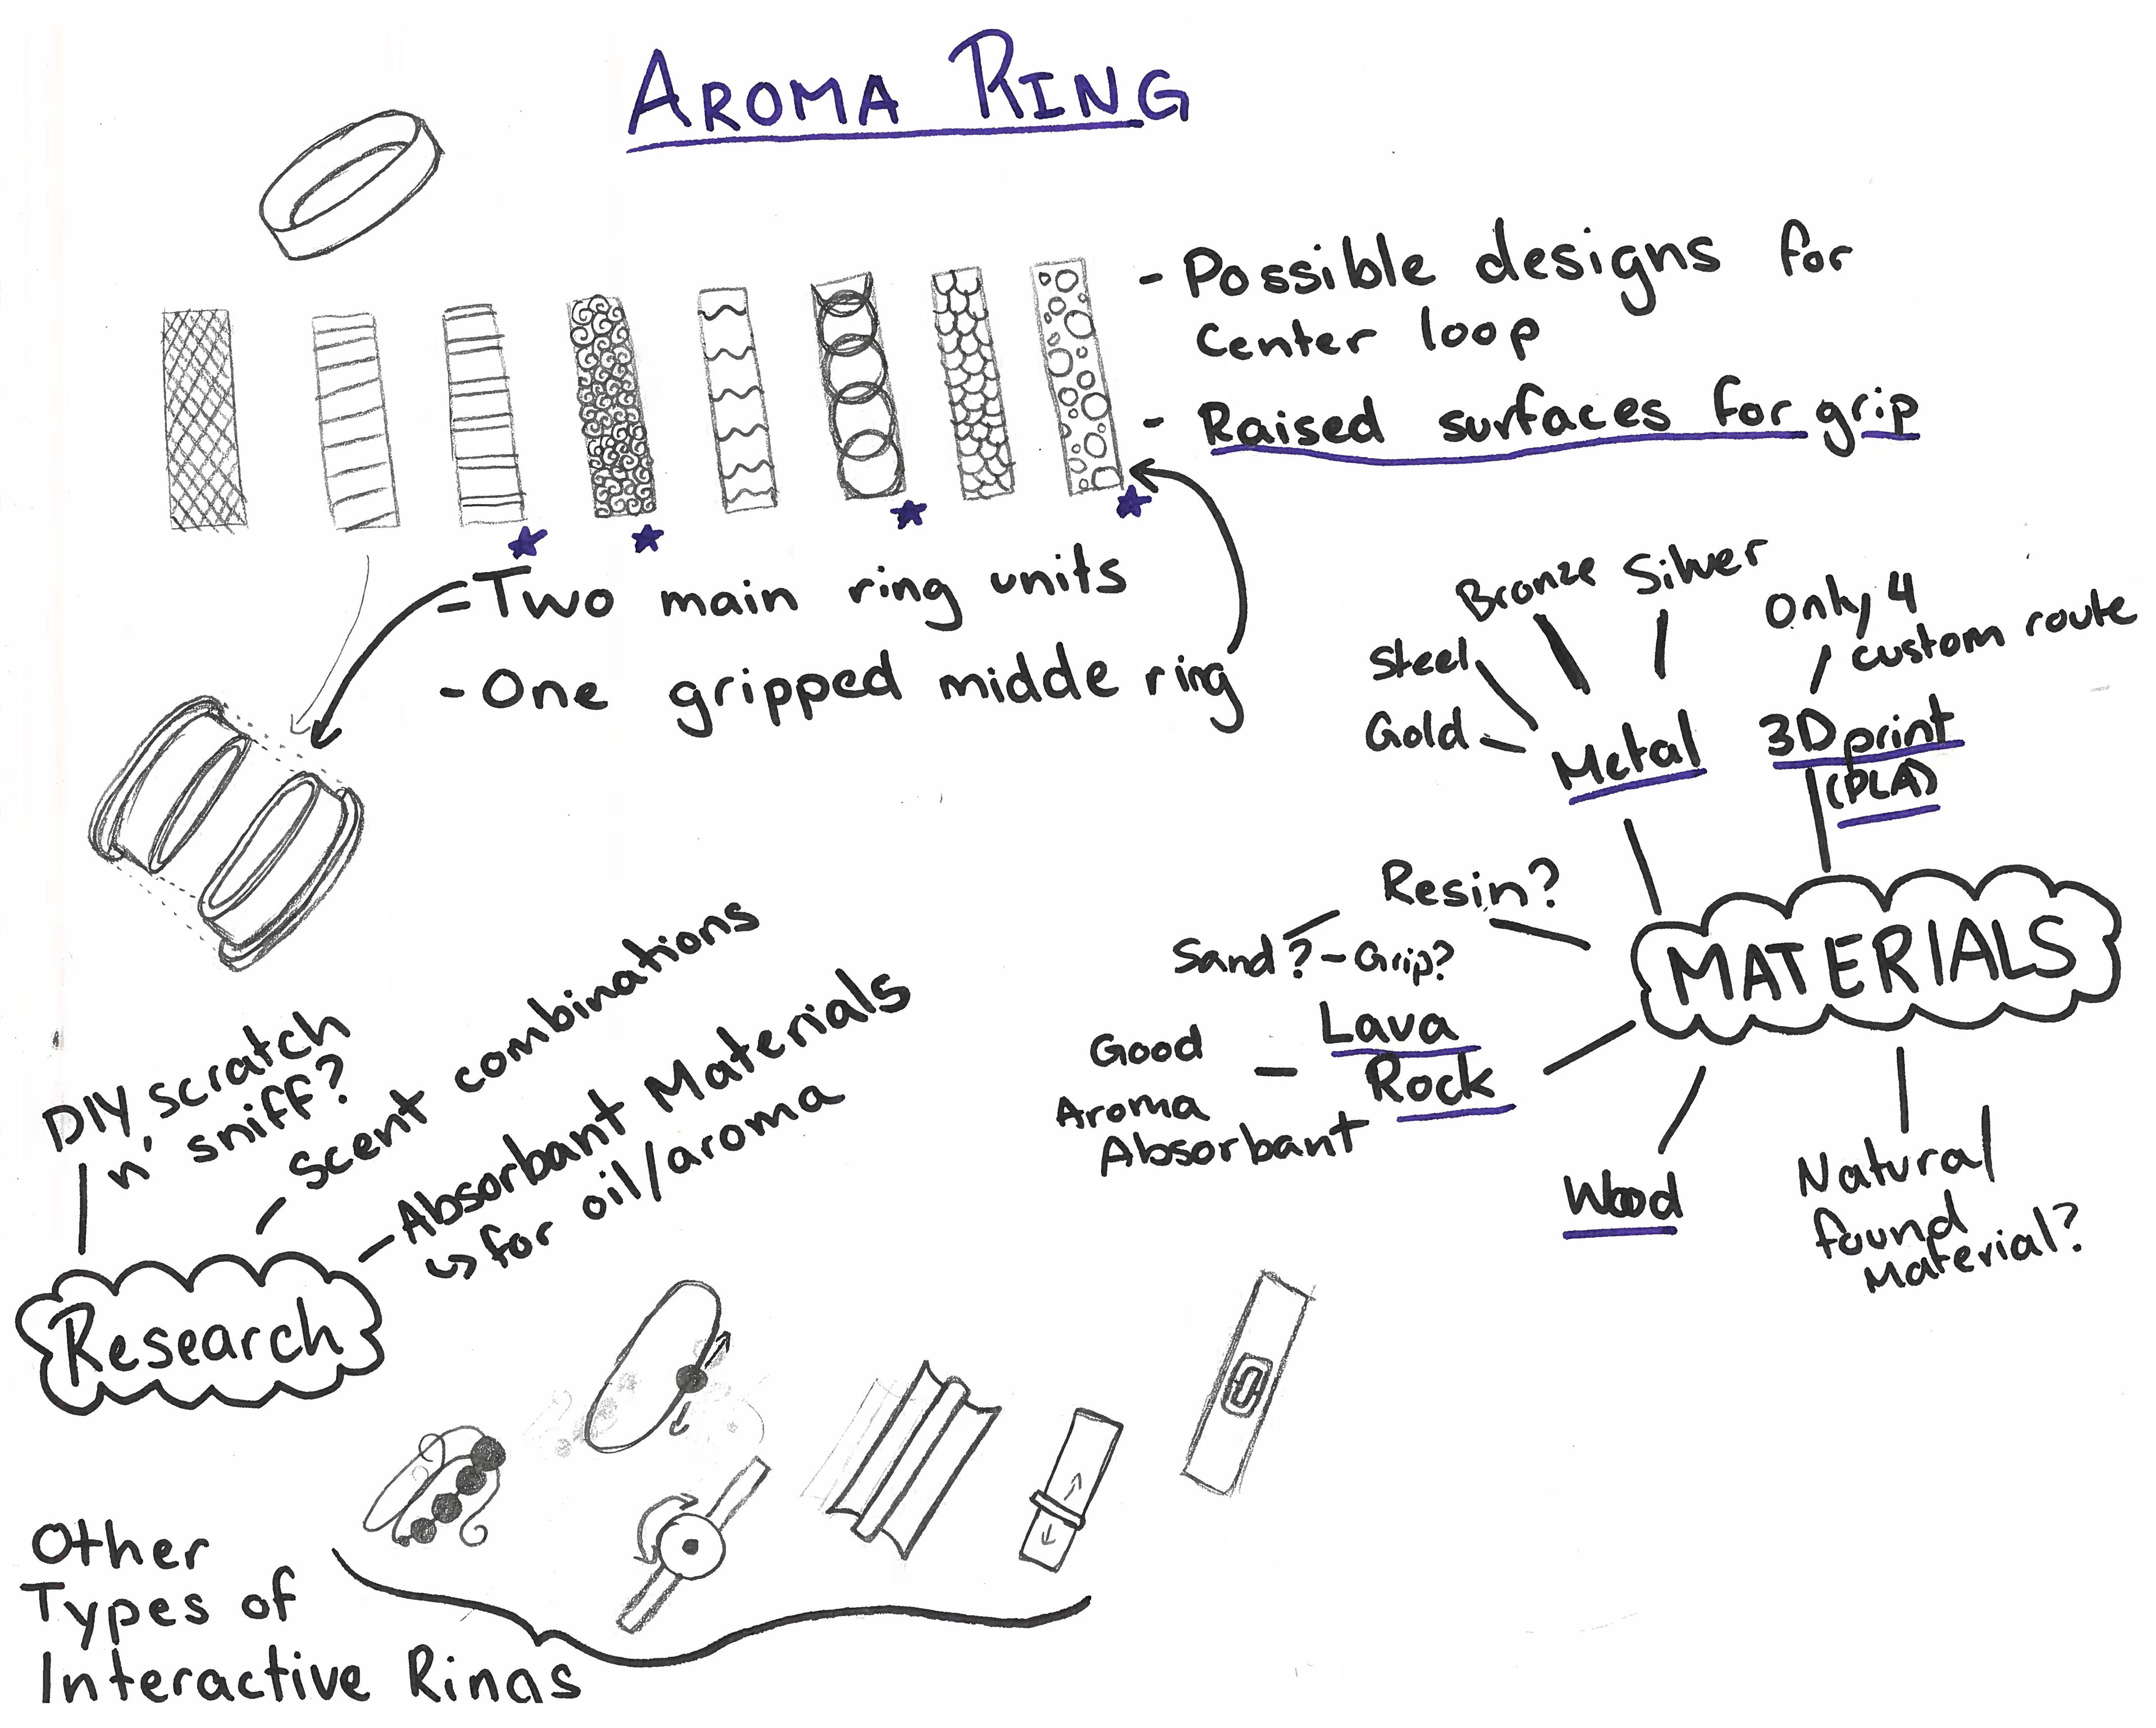 AROMA RING
- Possible designs for
center loop
- Raised surfaces for grip
- Two main ring units
- One gripped midde ring
Bronze
Silver
Steel
Gold
Metal
Only 4
custom route
3D print
(PLA)
Resin?
Sand? - Grip?
MATERIALS
Good
Aroma
Absorbant
- Lava
Rock
Wood
Natural
found
Material?
DIY scratch
n' sniff?
Scent combinations
- Absorbant Materials
↳ for oil/aroma
Research
Other
Types of
Interactive Rings